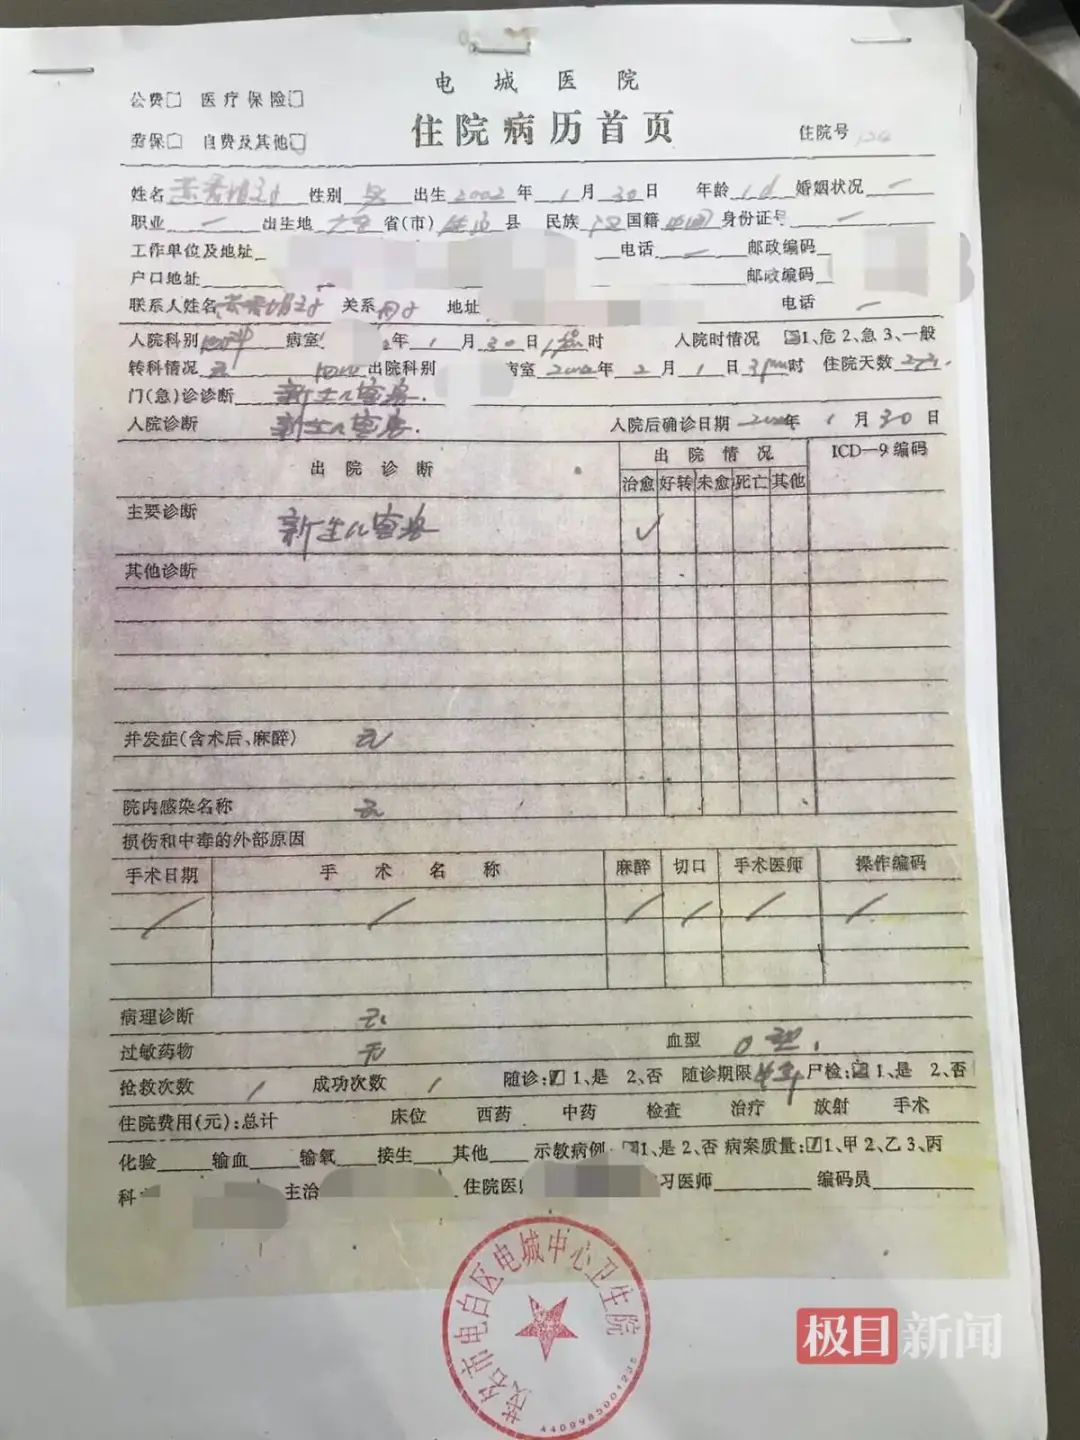 电城医院
公费□ 医疗保险□
劳保□ 自费及其他□
住院病历首页
住院号
姓名 性别 出生 2002 年 1 月 30 日 年龄 1d 婚姻状况 一
职业 一 出生地 省(市) 县 民族 汉 国籍 中国 身份证号 一
工作单位及地址 电话 一 邮政编码
户口地址 邮政编码
联系人姓名 关系 地址 电话 一
入院科别 病室 年 1 月 30 日 时 入院时情况 1、危 2、急 3、一般
转科情况 无 出院科别 病室 2002 年 2 月 1 日 3pm 时 住院天数 2天
门(急)诊诊断 新生儿窒息.
入院诊断 新生儿窒息. 入院后确诊日期 年 1 月 30 日
出院诊断 出院情况 ICD—9编码
治愈 好转 未愈 死亡 其他
主要诊断 新生儿窒息 ✓
其他诊断
并发症(含术后、麻醉) 无
院内感染名称 无
损伤和中毒的外部原因
手术日期 手术名称 麻醉 切口 手术医师 操作编码
病理诊断 无
过敏药物 无 血型 O型.
抢救次数 1 成功次数 1 随诊: 1、是 2、否 随诊期限 半年 尸检: 1、是 2、否
住院费用(元):总计 床位 西药 中药 检查 治疗 放射 手术
化验 输血 输氧 接生 其他 示教病例 1、是 2、否 病案质量: 1、甲 2、乙 3、丙
科 主治 住院医 习医师 编码员
茂名市电白区电城中心卫生院
4409985001235
极目新闻